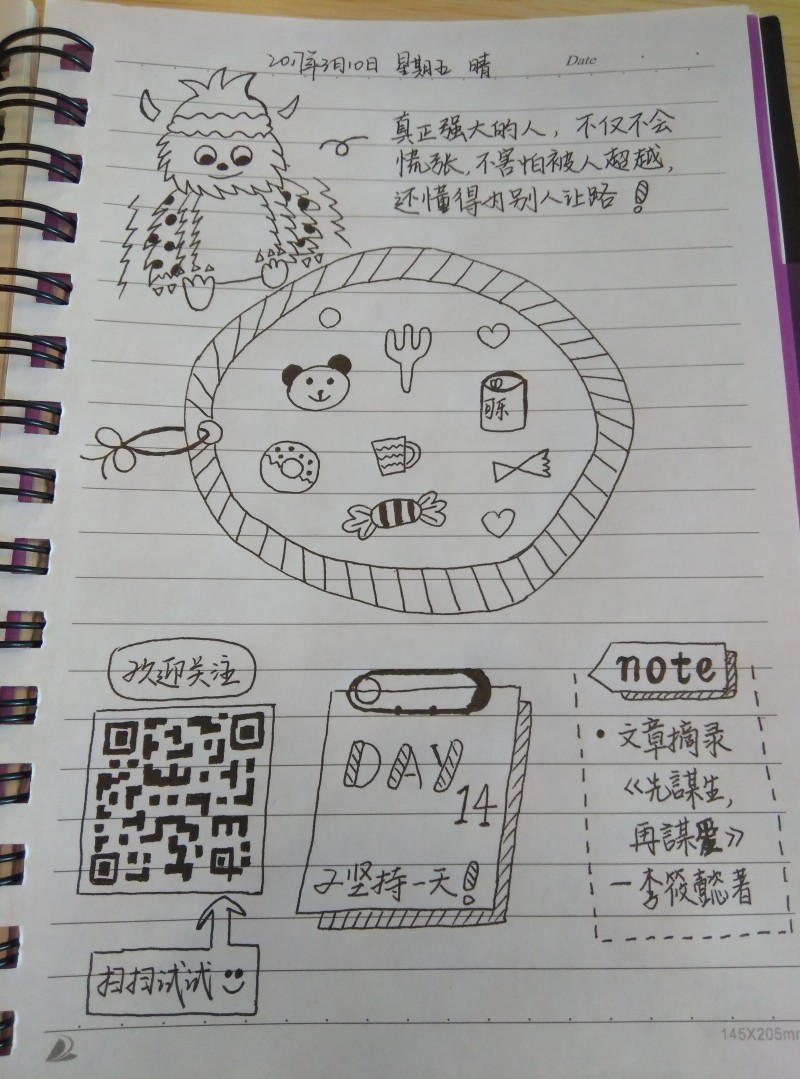 2017年3月10日 星期五 晴
Date
真正强大的人，不仅不会
慌张，不害怕被人超越，
还懂得为别人让路！
可乐
欢迎关注
note
DAY
14
又坚持一天！
• 文章摘录
《先謀生，
再謀愛》
—李筱懿著
扫扫试试
145X205mm